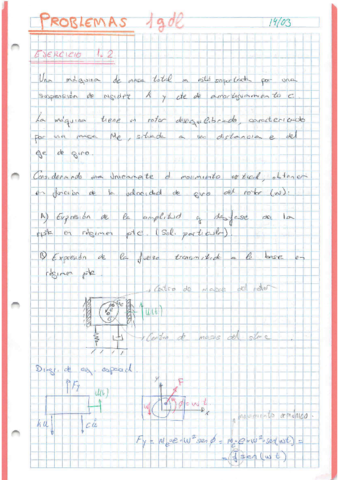 PROBLEMAS 1gdl
14/03
EJERCICIO 1.2
Una máquina de masa total m está soportada por una
suspensión de rigidez K y de amortiguamiento c
La máquina tiene un rotor desequilibrado, caracterizado
por una masa Me, situada a una distancia e del
eje de giro.
Considerando únicamente el movimiento vertical, obtener
en función de la velocidad de giro del rotor (ω):
A) Expresión de la amplitud y desfase de la
en régimen pte. (Sol. particular)
B) Expresión de la fuerza transmitida a la base en
régimen pte
Centro de masas del rotor
u(t)
Centro de masas del
Diag. de
Fy
u(t)
Ku
cu
y
F
x
Fy = Me·e·ω²·sen φ = Me·e·ω²·sen(ωt) =
= f sen(ωt)